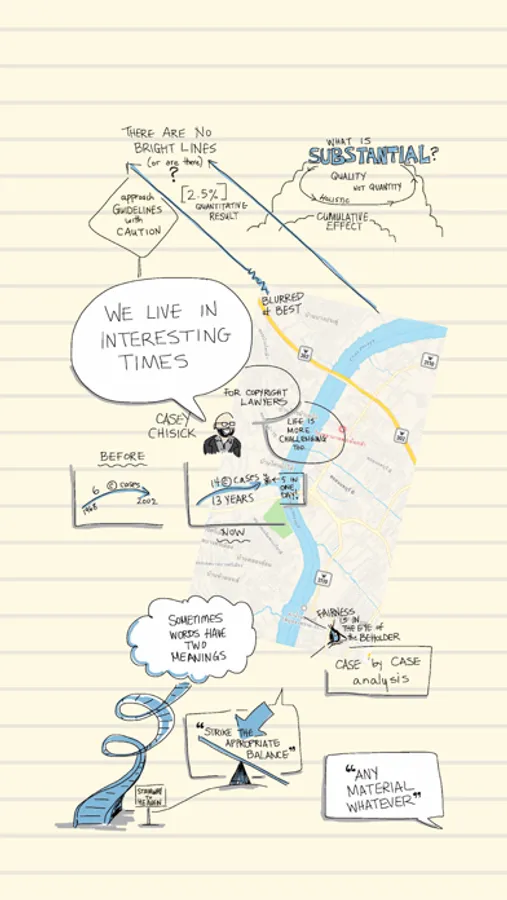 THERE ARE NO
BRIGHT LINES
(or are there)
?
[2.5%]
QUANTITATIVE
RESULT
approach
GUIDELINES
with
CAUTION
WHAT IS
SUBSTANTIAL?
QUALITY
NOT QUANTITY
HOLISTIC
CUMULATIVE
EFFECT
BLURRED
& BEST
WE LIVE IN
INTERESTING
TIMES
FOR COPYRIGHT
LAWYERS
LIFE IS
MORE
CHALLENGING
TOO.
CASEY
CHISICK
BEFORE
6 © CASES
1968
2002
14 © CASES
13 YEARS
5 IN
ONE
DAY!
NOW
FAIRNESS
IS IN
THE EYE of
the BEHOLDER
CASE by CASE
analysis
SOMETIMES
WORDS HAVE
TWO
MEANINGS
"STRIKE THE
APPROPRIATE
BALANCE"
STAIRWAY
TO
HEAVEN
"ANY
MATERIAL
WHATEVER"